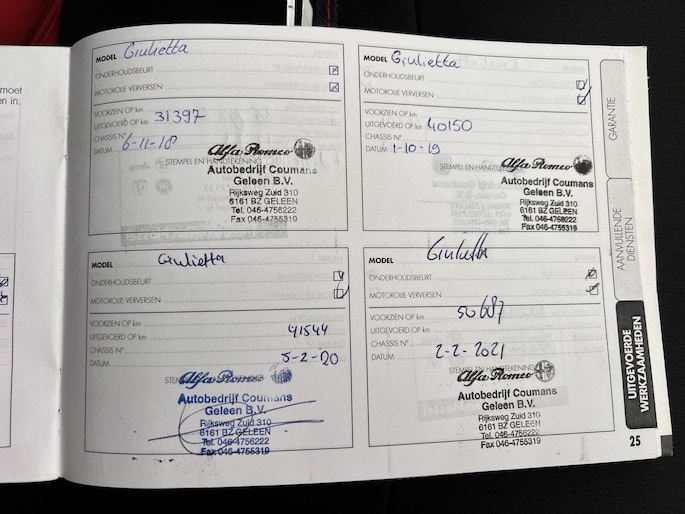 moet
en in;
MODEL Giulietta
ONDERHOUDSBEURT
MOTOROLIE VERVERSEN
VOORZIEN OP km
UITGEVOERD OP km 31397
CHASSIS N°
DATUM 6-11-18
STEMPEL EN HANDTEKENING
Alfa Romeo
Autobedrijf Coumans
Geleen B.V.
Rijksweg Zuid 310
6161 BZ GELEEN
Tel. 046-4756222
Fax 046-4755319
MODEL Giulietta
ONDERHOUDSBEURT
MOTOROLIE VERVERSEN
VOORZIEN OP km
UITGEVOERD OP km 40150
CHASSIS N°
DATUM 1-10-19
STEMPEL EN HANDTEKENING
Alfa Romeo
Autobedrijf Coumans
Geleen B.V.
Rijksweg Zuid 310
6161 BZ GELEEN
Tel. 046-4756222
Fax 046-4755319
MODEL Giulietta
ONDERHOUDSBEURT
MOTOROLIE VERVERSEN
VOORZIEN OP km
UITGEVOERD OP km 41544
CHASSIS N°
DATUM 5-2-20
Alfa Romeo
Autobedrijf Coumans
Geleen B.V.
Rijksweg Zuid 310
6161 BZ GELEEN
Tel. 046-4756222
Fax 046-4755319
MODEL Giulietta
ONDERHOUDSBEURT
MOTOROLIE VERVERSEN
VOORZIEN OP km 50687
UITGEVOERD OP km
CHASSIS N° 2-2-2021
DATUM
STEMPEL EN HANDTEKENING
Alfa Romeo
Autobedrijf Coumans
Geleen B.V.
Rijksweg Zuid 310
6161 BZ GELEEN
Tel. 046-4756222
Fax 046-4755319
GARANTIE
AANVULLENDE
DIENSTEN
UITGEVOERDE
WERKZAAMHEDEN
25